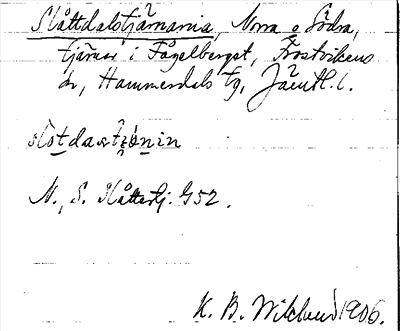 Slåttdalstjärnarna, Norra o Södra,
tjärnar i Fågelbergst, Frostvikens
sn, Hammerdals tg, Jämtl. l.
N., S. Slåttetj. G52.
K. B. Wiklund 1906.